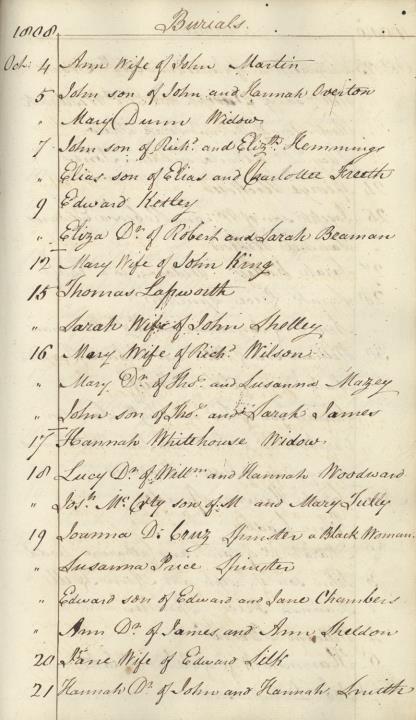 Burials.
1808
Oct: 4 Ann Wife of John Martin
5 John son of John and Hannah Overton
" Mary Dunn Widow
7 John son of Richd. and Elizth. Hemmings
" Elias son of Elias and Charlotte Freeth
9 Edward Ketley
" Eliza Dr. of Robert and Sarah Beaman
12 Mary Wife of John King
15 Thomas Lapworth
" Sarah Wife of John Shelley
16 Mary Wife of Richd. Wilson
" Mary Dr. of Thos. and Susanna Mazey
" John son of Thos. and Sarah James
17 Hannah Whitehouse Widow
18 Lucy Dr. of Willm. and Hannah Woodward
" Josh. Mc. son of M and Mary Tully
19 Joanna D: Cruz Spinster a Black Woman.
" Susanna Price Spinster
" Edward son of Edward and Jane Chambers
" Ann Dr. of James and Ann Sheldon
20 Jane Wife of Edward Silk
21 Hannah Dr. of John and Hannah Smith